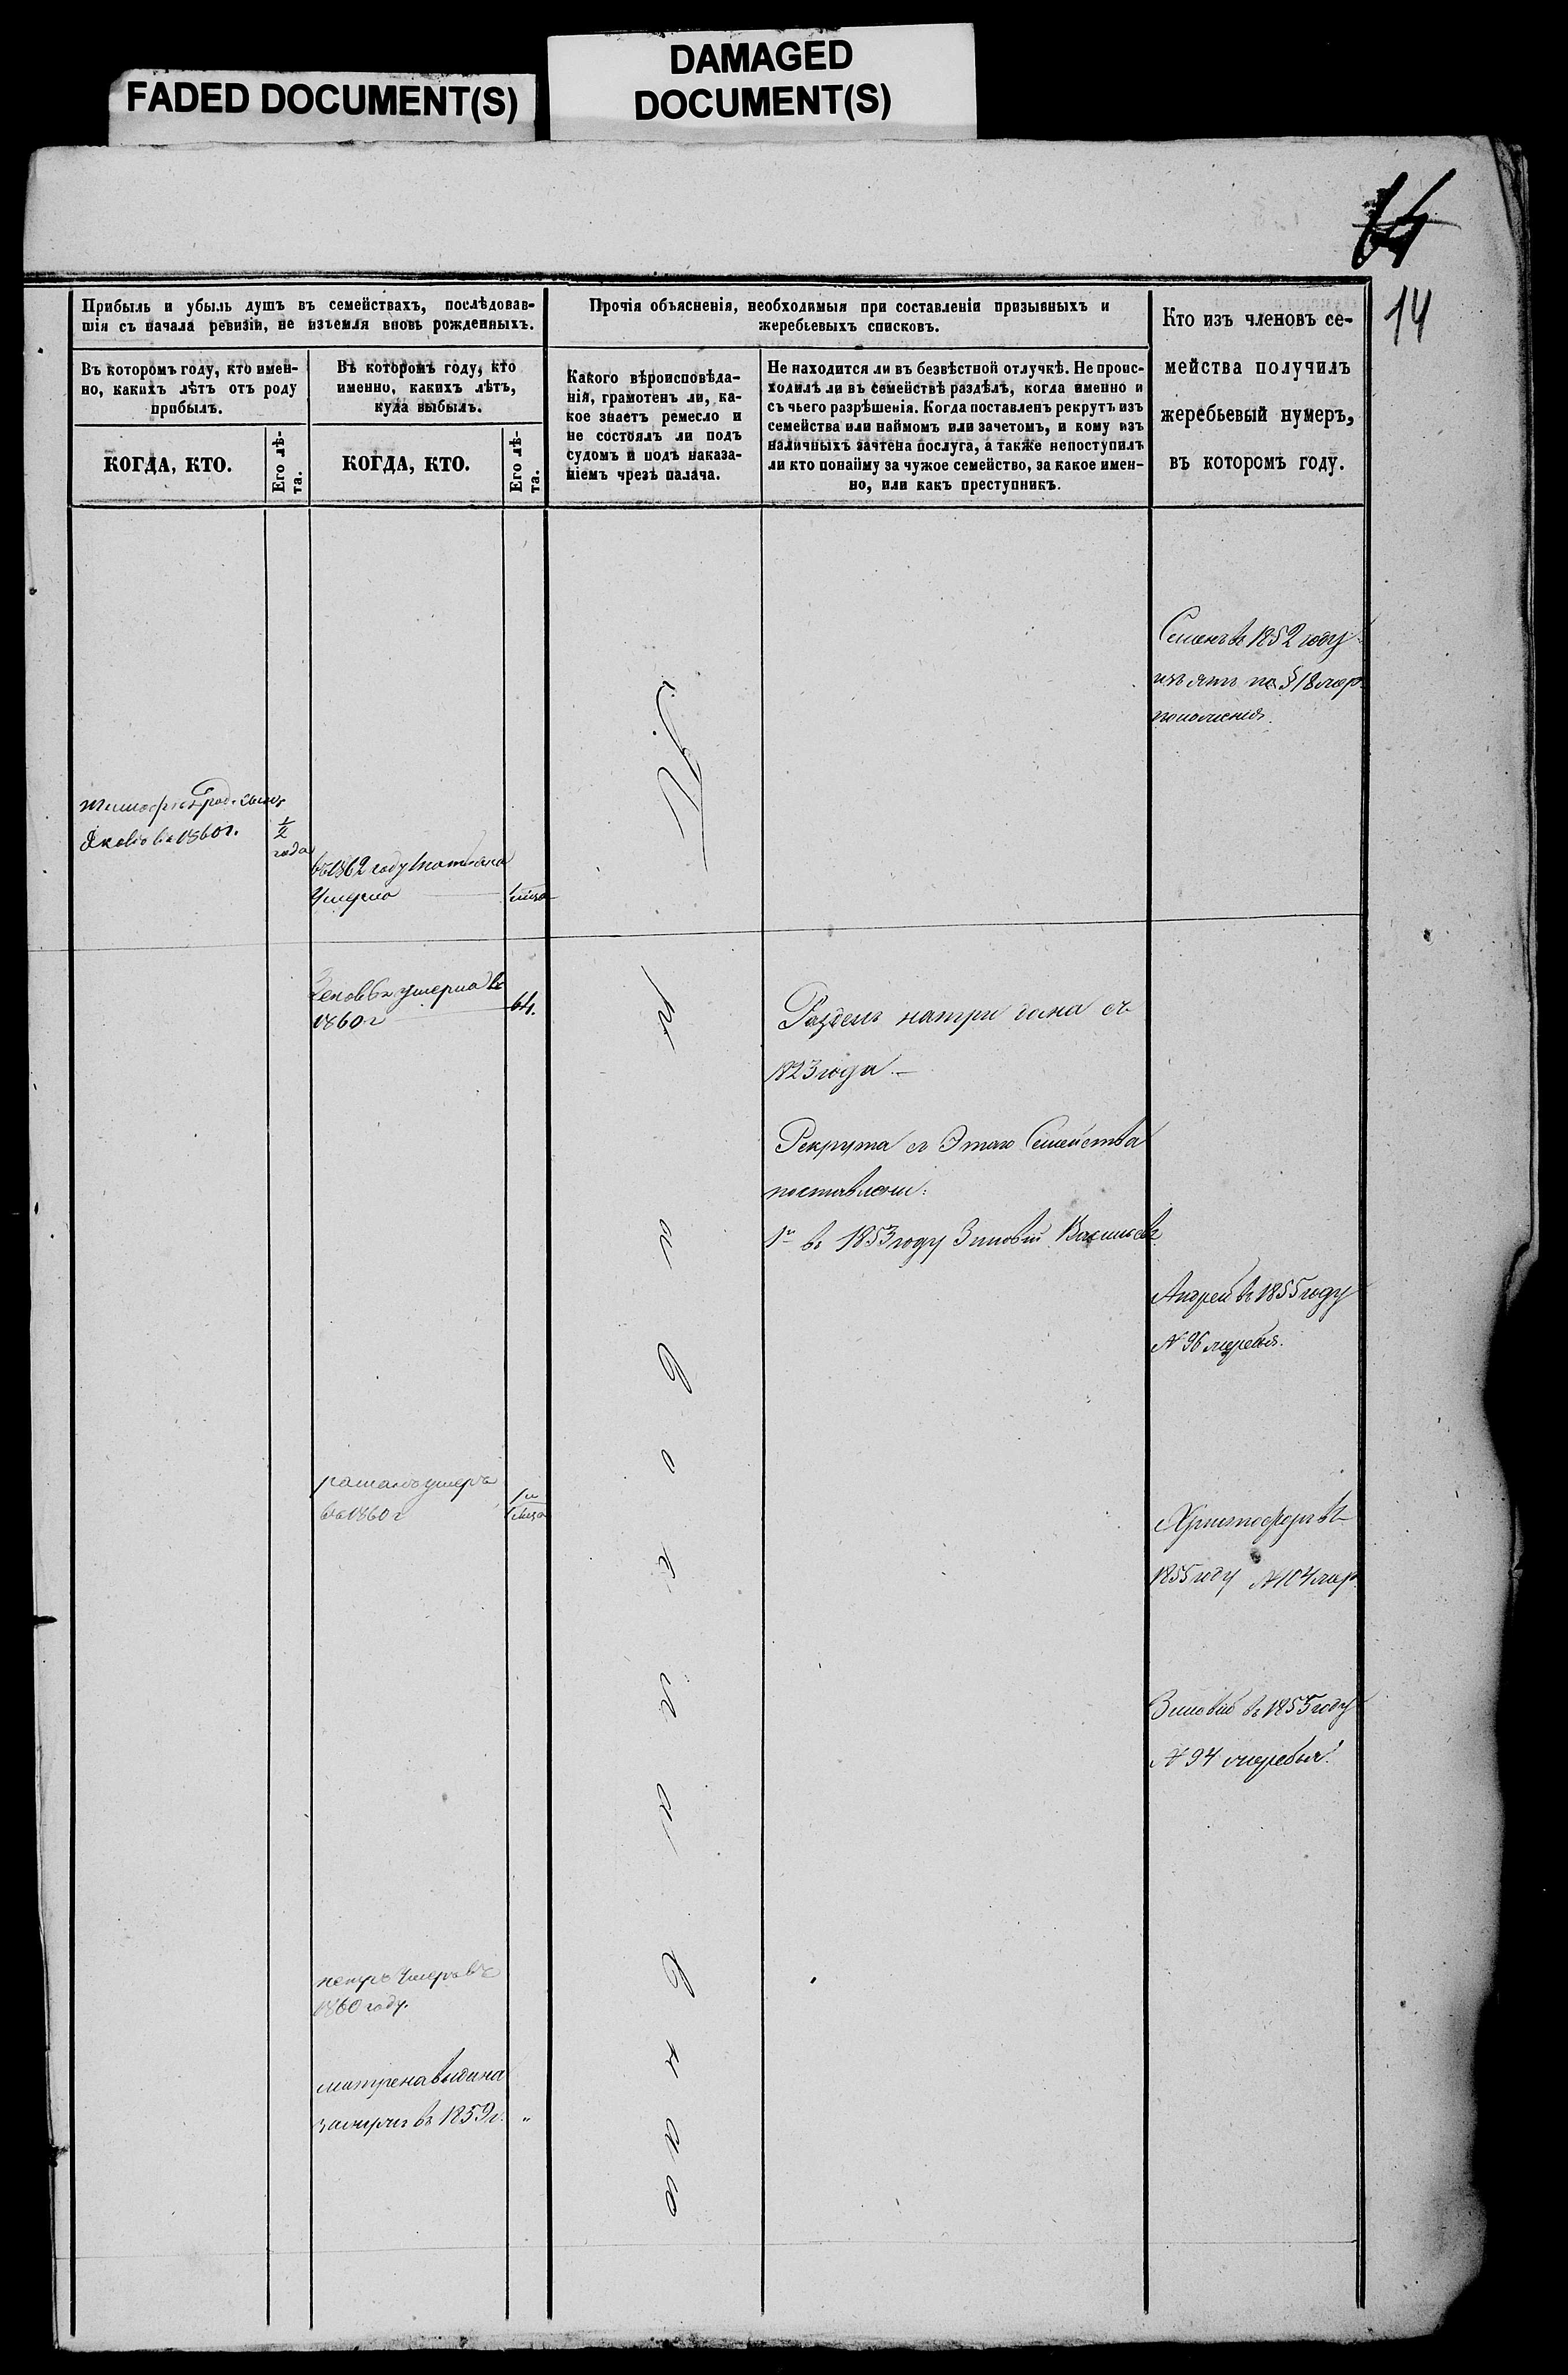 FADED DOCUMENT(S)
DAMAGED
DOCUMENT(S)
14
Прибыль и убыль душъ въ семействахъ, послѣдовав-
шія съ начала ревизіи, не изъемля вновь рожденныхъ.
Въ которомъ году, кто имен-
но, какихъ лѣтъ отъ роду
прибылъ.
КОГДА, КТО.
Его лѣ-
та.
Въ которомъ году, кто
именно, какихъ лѣтъ,
куда выбылъ.
КОГДА, КТО.
Его лѣ-
та.
Прочія объясненія, необходимыя при составленіи призывныхъ и
жеребьевыхъ списковъ.
Какого вѣроисповѣда-
нія, грамотенъ ли, ка-
кое знаетъ ремесло и
не состоялъ ли подъ
судомъ и подъ наказа-
ніемъ чрезъ палача.
Не находится ли въ безвѣстной отлучкѣ. Не проис-
ходилъ ли въ семействѣ раздѣлъ, когда именно и
съ чьего разрѣшенія. Когда поставленъ рекрутъ изъ
семейства или наймомъ или зачетомъ, и кому изъ
наличныхъ зачтена послуга, а также непоступилъ
ли кто понайму за чужое семейство, за какое имен-
но, или какъ преступникъ.
Кто изъ членовъ се-
мейства получилъ
жеребьевый нумеръ,
въ которомъ году.
Семенъ въ 1852 году
изъятъ по § 18 жер.
положенія.
сынъ
Яковъ въ 1860 г.
1/2
года
въ 1862 году
Умерла
умерла въ
1860 г
64.
Раздѣлъ натри дома съ
1823 года. —
Рекрута съ Этаго Семейства
поставлены:
1й въ 1853 году Зиновій Васильевъ
Андрей въ 1855 году
№ 96 жеребья.
умеръ
въ 1860 г
Христофоръ въ
1855 году № 104 жер
Зиновій въ 1855 году
№ 94 жеребья.
петръ Умеръ въ
1860 году.
матрена выдана
замужъ въ 1859 г.
"